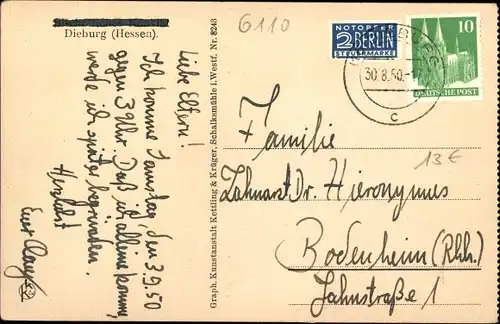 Dieburg (Hessen).
Liebe Eltern!
Ich komme Samstag, den 3.9.50
gegen 3 Uhr. Daß ich alleine komme,
werde ich später begründen.
Herzlichst
Euer
Graph. Kunstanstalt Kettling & Krüger, Schalksmühle i. Westf. Nr. 8243
6110
NOTOPFER
2 BERLIN
STEUERMARKE
10
DEUTSCHE POST
30.8.50.
c
13€
Familie
Zahnarzt Dr. Hieronymus
Bodenheim (Rhh.)
Jahnstraße 1